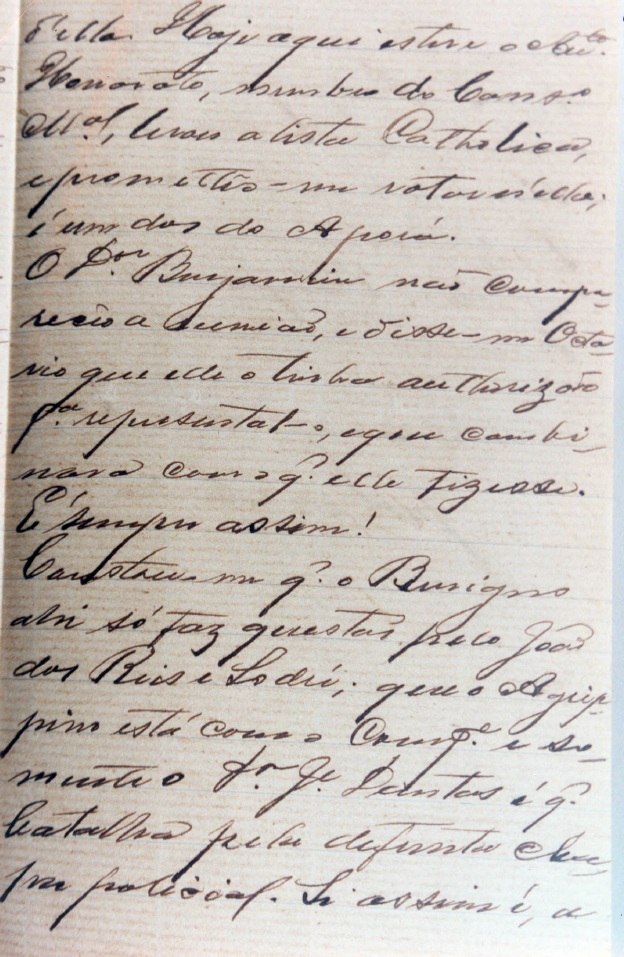 d'ella. Hoje aqui esteve o
Honorato, membro do Cons.º
M.al, levou a lista Catholica,
e prometteo-me votar n'ella;
é um dos do Aporá.
O D.or Benjamin não compa-
receo a reunião, e disse-me Octa-
vio que elle o tinha authorizado
p.a representál-o, e que combi-
nara com o q. elle fizesse.
É sempre assim!
Constou-me q. o Benigno
ahi só faz questão pelo João
dos Reis e Sodré; que o Agrip-
pino está com o Comp.e e so-
mente o D.or J.e Dantas é q.
batalha pela defunta cha-
pa policial. Si assim é, a